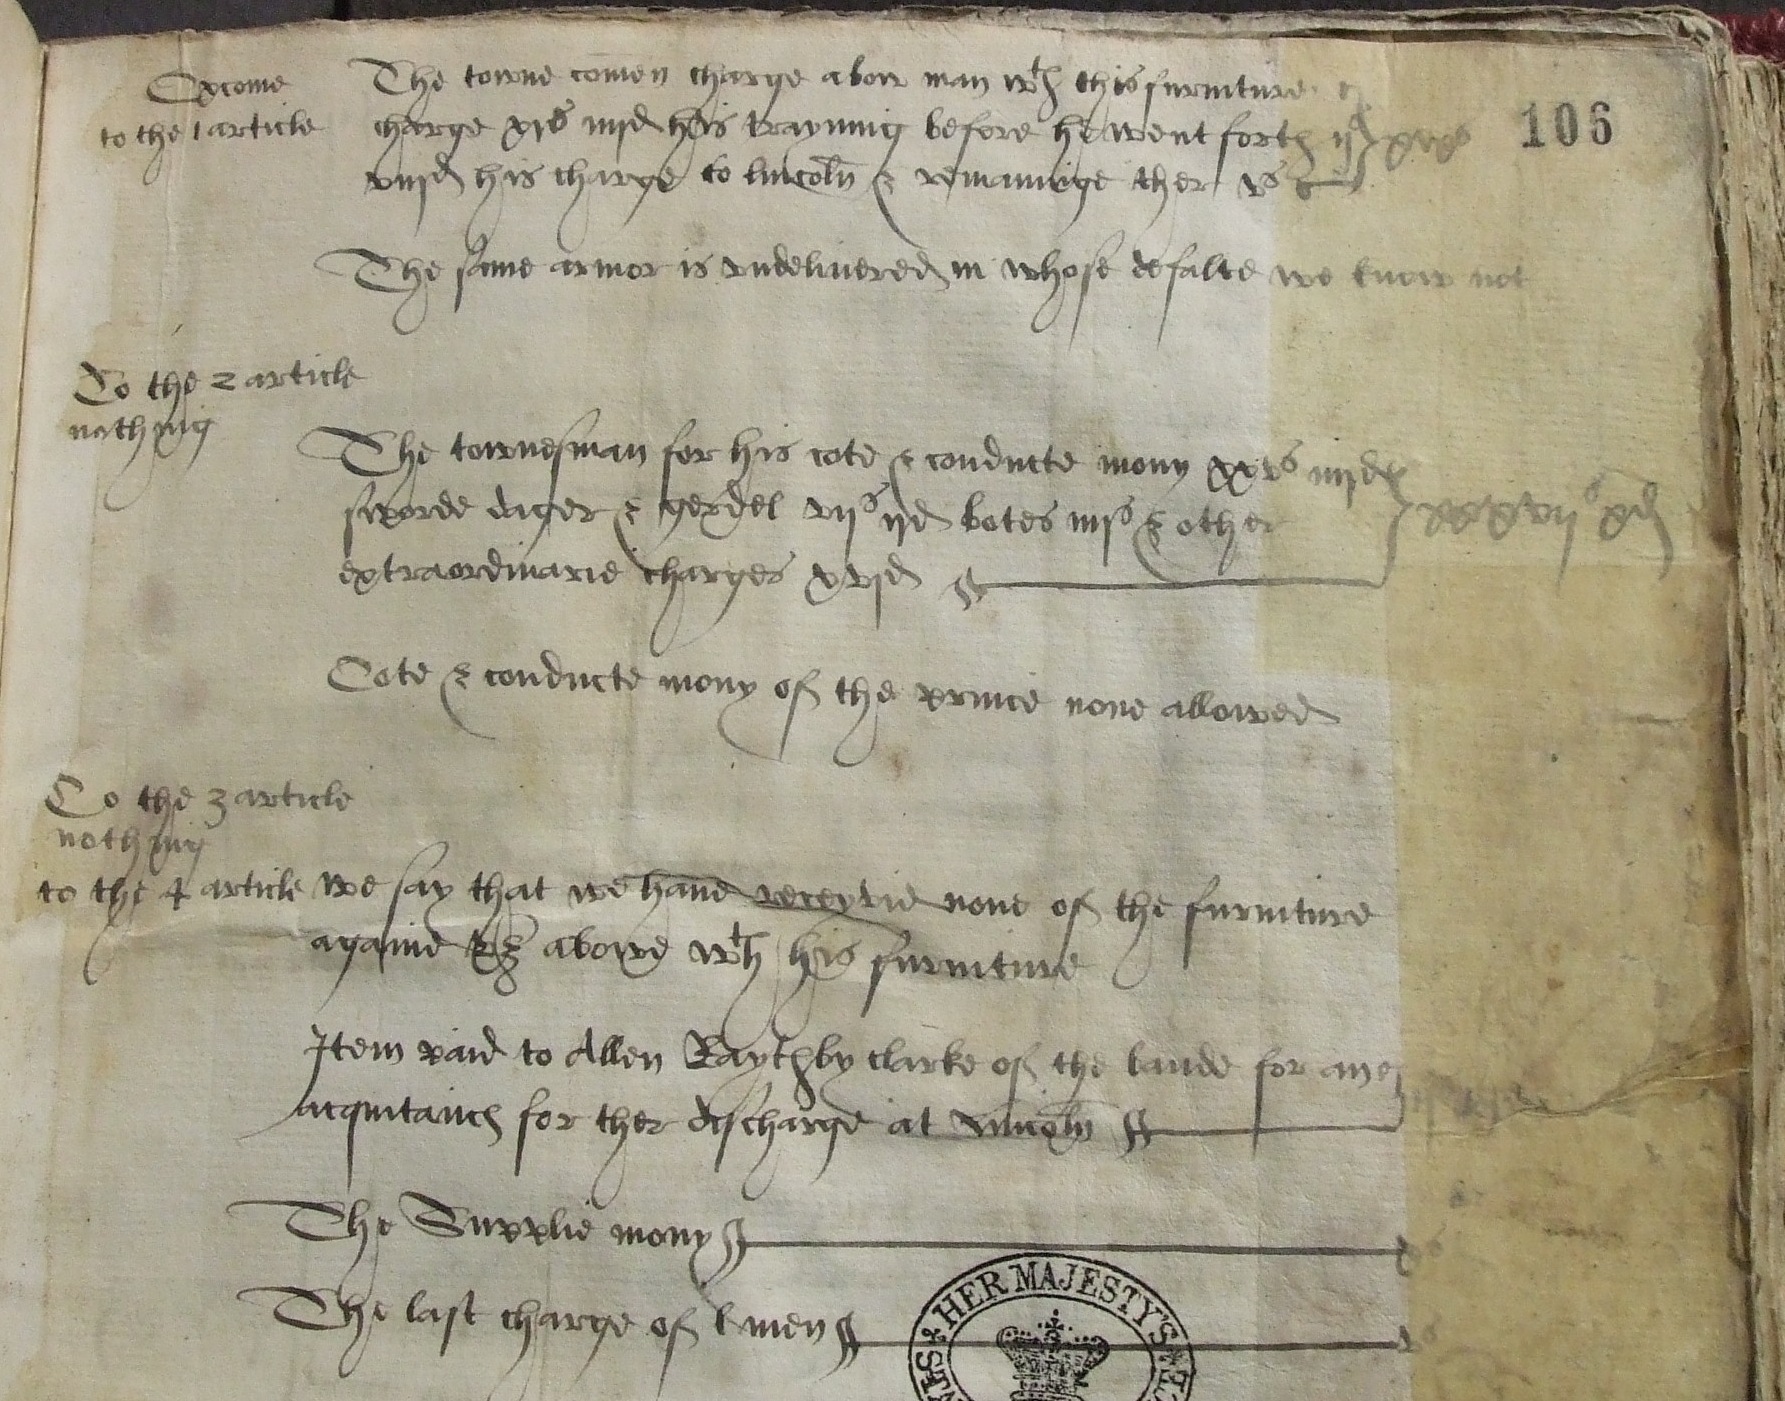 Oxcome
to the 1 article
The towne comen charge a bow man wth this furniture
charge xjs iiijd his trayning before he went forth ijs
viijd his charge to lincoln & remaninge ther vs
xixs
106
The same armor is vndelivered in whose defalte we know not
To the 2 article
nothing
The townesman for his cote & conducte mony xxvs iiijd
sworde dager & gerdel vijs ijd botes iiijs & other
extraordinarie charges xvjd
xxxvijs xd
Cote & conducte mony of the prince none allowed
To the 3 article
nothing
to the 4 article we say that we have receyvid none of the furniture
againe vz a bowe wth his furniture
Item paid to Allen Raythby clarke of the bande for an
acquitance for ther discharge at lincoln
The Supplie mony xs
The last charge of l men
HER MAJESTY'S